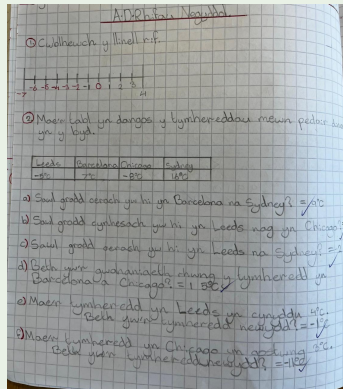 ① Cwblhewch y llinell rif.
-7 -6 -5 -4 -3 -2 -1 0 1 2 3 4
② Mae'r tabl yn dangos y tymhereddau mewn pedair
yn y byd.
Leeds Barcelona Chicago Sydney
7°C -8°C
a) Sawl gradd oerach yw hi yn Barcelona na Sydney? =
b) Sawl gradd cynhesach yw hi yn Leeds nag yn Chicago?
c) Sawl gradd oerach yw hi yn Leeds na Sydney? =
d) Beth yw'r gwahaniaeth rhwng y tymheredd yn
Barcelona a Chicago? = 15°C
e) Mae'r tymheredd yn Leeds yn cynyddu 4°C.
Beth yw'r tymheredd newydd? =
Mae'r tymheredd yn Chicago yn gostwng 3°C.
Beth yw'r tymheredd newydd? = -11°C